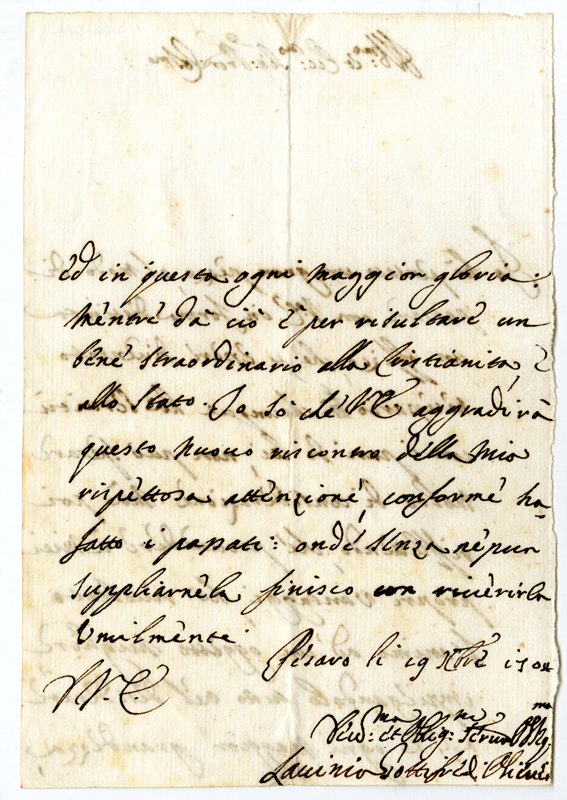 ed in questa ogni maggior gloria:
mentre da ciò è per risultare un
bene straordinario alla Cristianità, è
allo Stato. Io sò che V.E. aggradirà
questo nuouo riscontro della mia
rispettosa attenzione, conforme ha
fatto i passati: onde senza nèpur
suppliarnela finisco con riuerirla
Vmilmente
Pesaro li 19 Xbre
V.E.
Lauinio Gottifredi